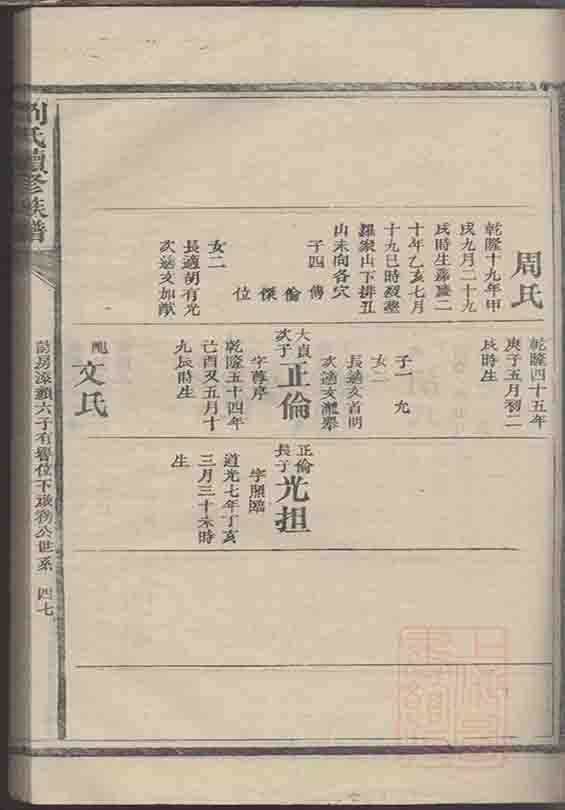 周氏
乾隆十九年甲
戌九月二十九
戌時生嘉慶二
十年乙亥七月
十九巳時歿塟
羅家山下排丑
山未向各穴
子四 傳 倫 傑 位
女二
長適胡有光
次適文如猷
乾隆四十五年
庚子五月初二
戌時生
子一 九
女二
長適文首明
次適文瀧舉
大貞
次子
正倫
字專序
乾隆五十四年
己酉又五月十
九辰時生
配
文氏
正倫
長子
光担
字照臨
道光七年丁亥
三月三十未時
生
劉氏續修族譜
六子有譽位下
公世系
四七